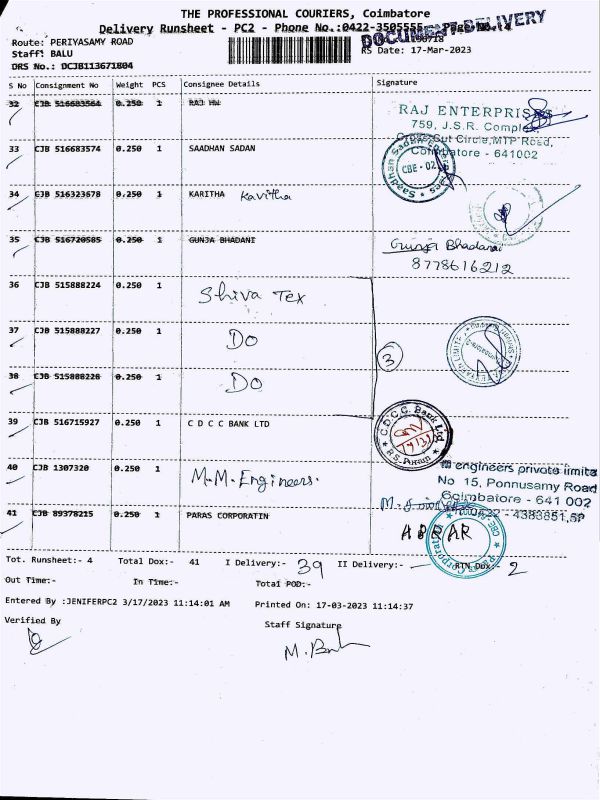 THE PROFESSIONAL COURIERS, Coimbatore
Delivery Runsheet - PC2 - Phone No.:0422-3505555 Page No. 4
DOCUMENT DELIVERY
Route: PERIYASAMY ROAD
Staff: BALU RS Date: 17-Mar-2023
DRS No.: DCJB113671804
S No Consignment No Weight PCS Consignee Details Signature
32 CJB 516683564 0.250 1 RAJ HW
RAJ ENTERPRISES
759, J.S.R. Complex,
Cross Cut Circle, MTP Road,
Coimbatore - 641002
33 CJB 516683574 0.250 1 SAADHAN SADAN
Saadhan Sadan Enterprises
CBE - 02
34 CJB 516323678 0.250 1 KARITHA Kavitha
35 CJB 516720585 0.250 1 GUNJA BHADANI Gunja Bhadani
8778616212
36 CJB 515888224 0.250 1 Shiva Tex
37 CJB 515888227 0.250 1 Do
3
38 CJB 515888228 0.250 1 Do
39 CJB 516715927 0.250 1 C D C C BANK LTD
C.D.C.C. Bank Ltd
R.S. Puram
40 CJB 1307320 0.250 1 M.M. Engineers.
engineers private limite
No 15, Ponnusamy Road
Coimbatore - 641 002
41 CJB 89378215 0.250 1 PARAS CORPORATIN
ABRAR
Tot. Runsheet:- 4 Total Dox:- 41 I Delivery:- 39 II Delivery:- - RTN Dox:- 2
Out Time:- In Time:- Total POD:-
Entered By :JENIFERPC2 3/17/2023 11:14:01 AM Printed On: 17-03-2023 11:14:37
Verified By Staff Signature